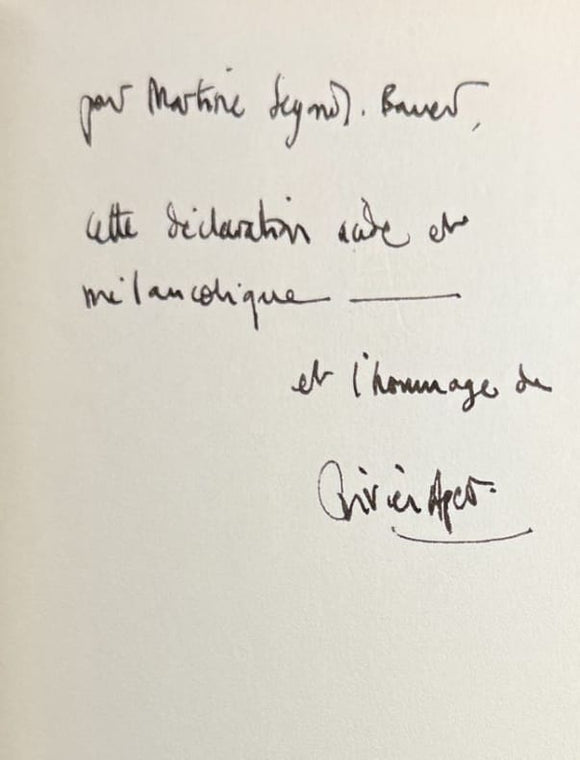 pour Martine Segond-Bauer,
cette déclaration acide et
mélancolique ———
et l'hommage de
Olivier Apert.